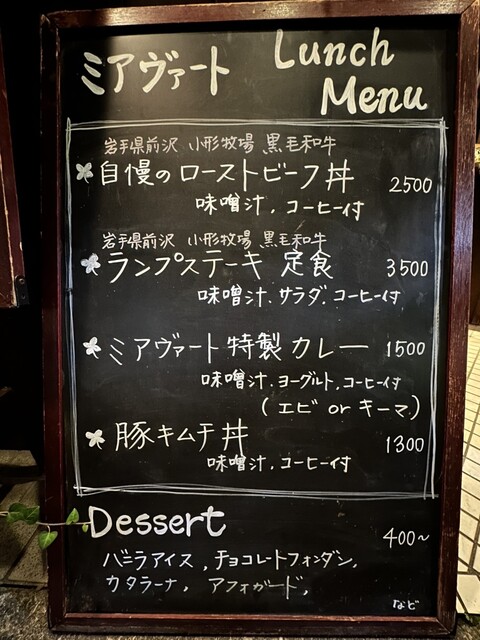 ミアヴァート Lunch Menu
岩手県前沢 小形牧場 黒毛和牛
自慢のローストビーフ丼 2500
味噌汁、コーヒー付
岩手県前沢 小形牧場 黒毛和牛
ランプステーキ 定食 3500
味噌汁、サラダ、コーヒー付
ミアヴァート特製カレー 1500
味噌汁、ヨーグルト、コーヒー付
(エビ or キーマ)
豚キムチ丼 1300
味噌汁、コーヒー付
Dessert 400~
バニラアイス、チョコレートフォンダン、
カタラーナ、アフォガード、
など